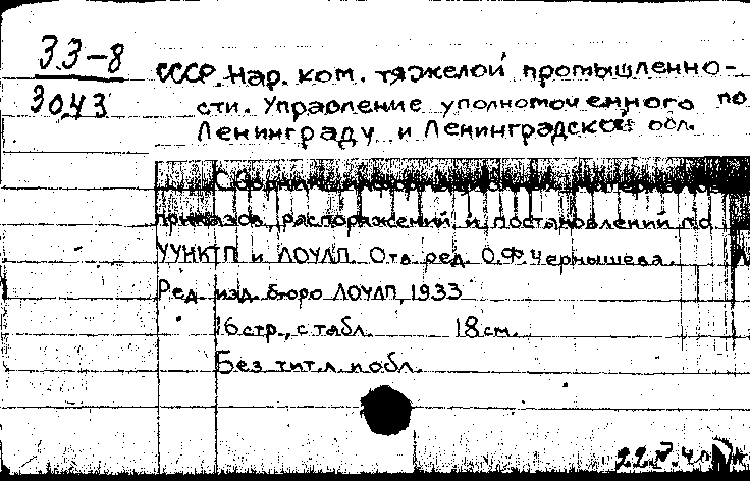 33-8
3043
СССР. Нар. ком. тяжелой промышленно-
сти. Управление уполномоченного по
Ленинграду и Ленинградской обл.
Сборник информационных материалов
приказов, распоряжений и постановлений по
УУНКТП и ЛОУЛП. Отв. ред. О.Ф. Чернышева.
Ред. изд. бюро ЛОУЛП, 1933
16 стр., с табл. 18 см.
Без тит. л. и обл.